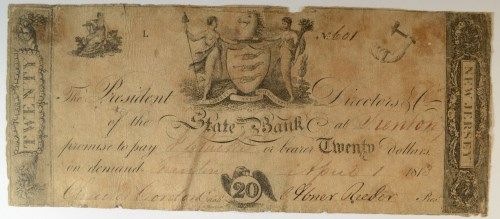 L No 601
TWENTY
NEW JERSEY
The President Directors & Co
of the State Bank at Trenton
promise to pay or bearer Twenty Dollars
on demand Trenton April 1 181
20